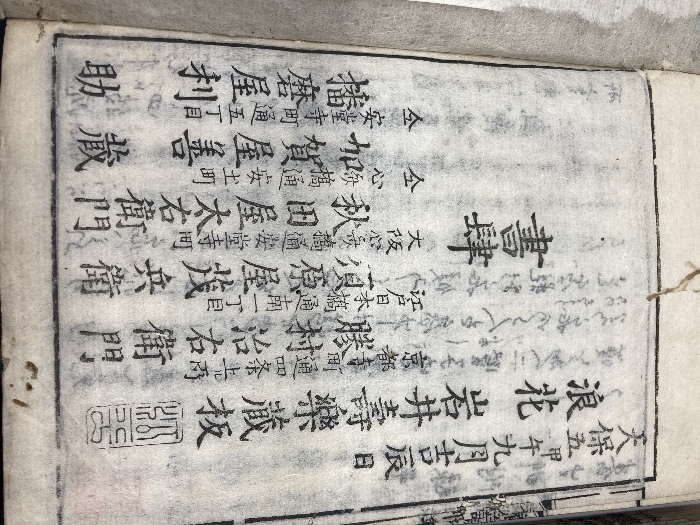 天保五甲午九月吉辰日
浪花 岩井壽樂蔵板
書肆
京都寺町通四条上ル町
勝村治右衛門
江戸日本橋通南一丁目
須原屋茂兵衛
大阪心斎橋通安堂寺町
秋田屋太右衛門
仝 心斎橋通安土町
加賀屋善蔵
仝 安堂寺町通五丁目
播磨屋利助